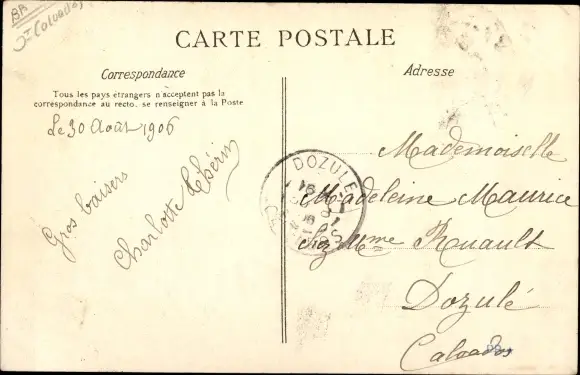 BB
Calvados
CARTE POSTALE
Correspondance
Adresse
Tous les pays étrangers n'acceptent pas la
correspondance au recto. se renseigner à la Poste
Le 30 Août 1906
Gros baisers
Charlotte
DOZULE
Mademoiselle
Madeleine Maurice
chez Mme Ruault
Dozulé
Calvados